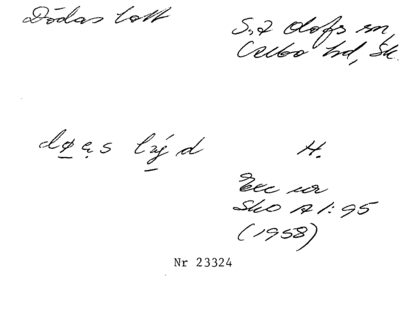 Dödas lott
S:t Olofs sn,
Albo hd, Sk.
H.
Exc ur
Sko A 1:95
(1958)
Nr 23324